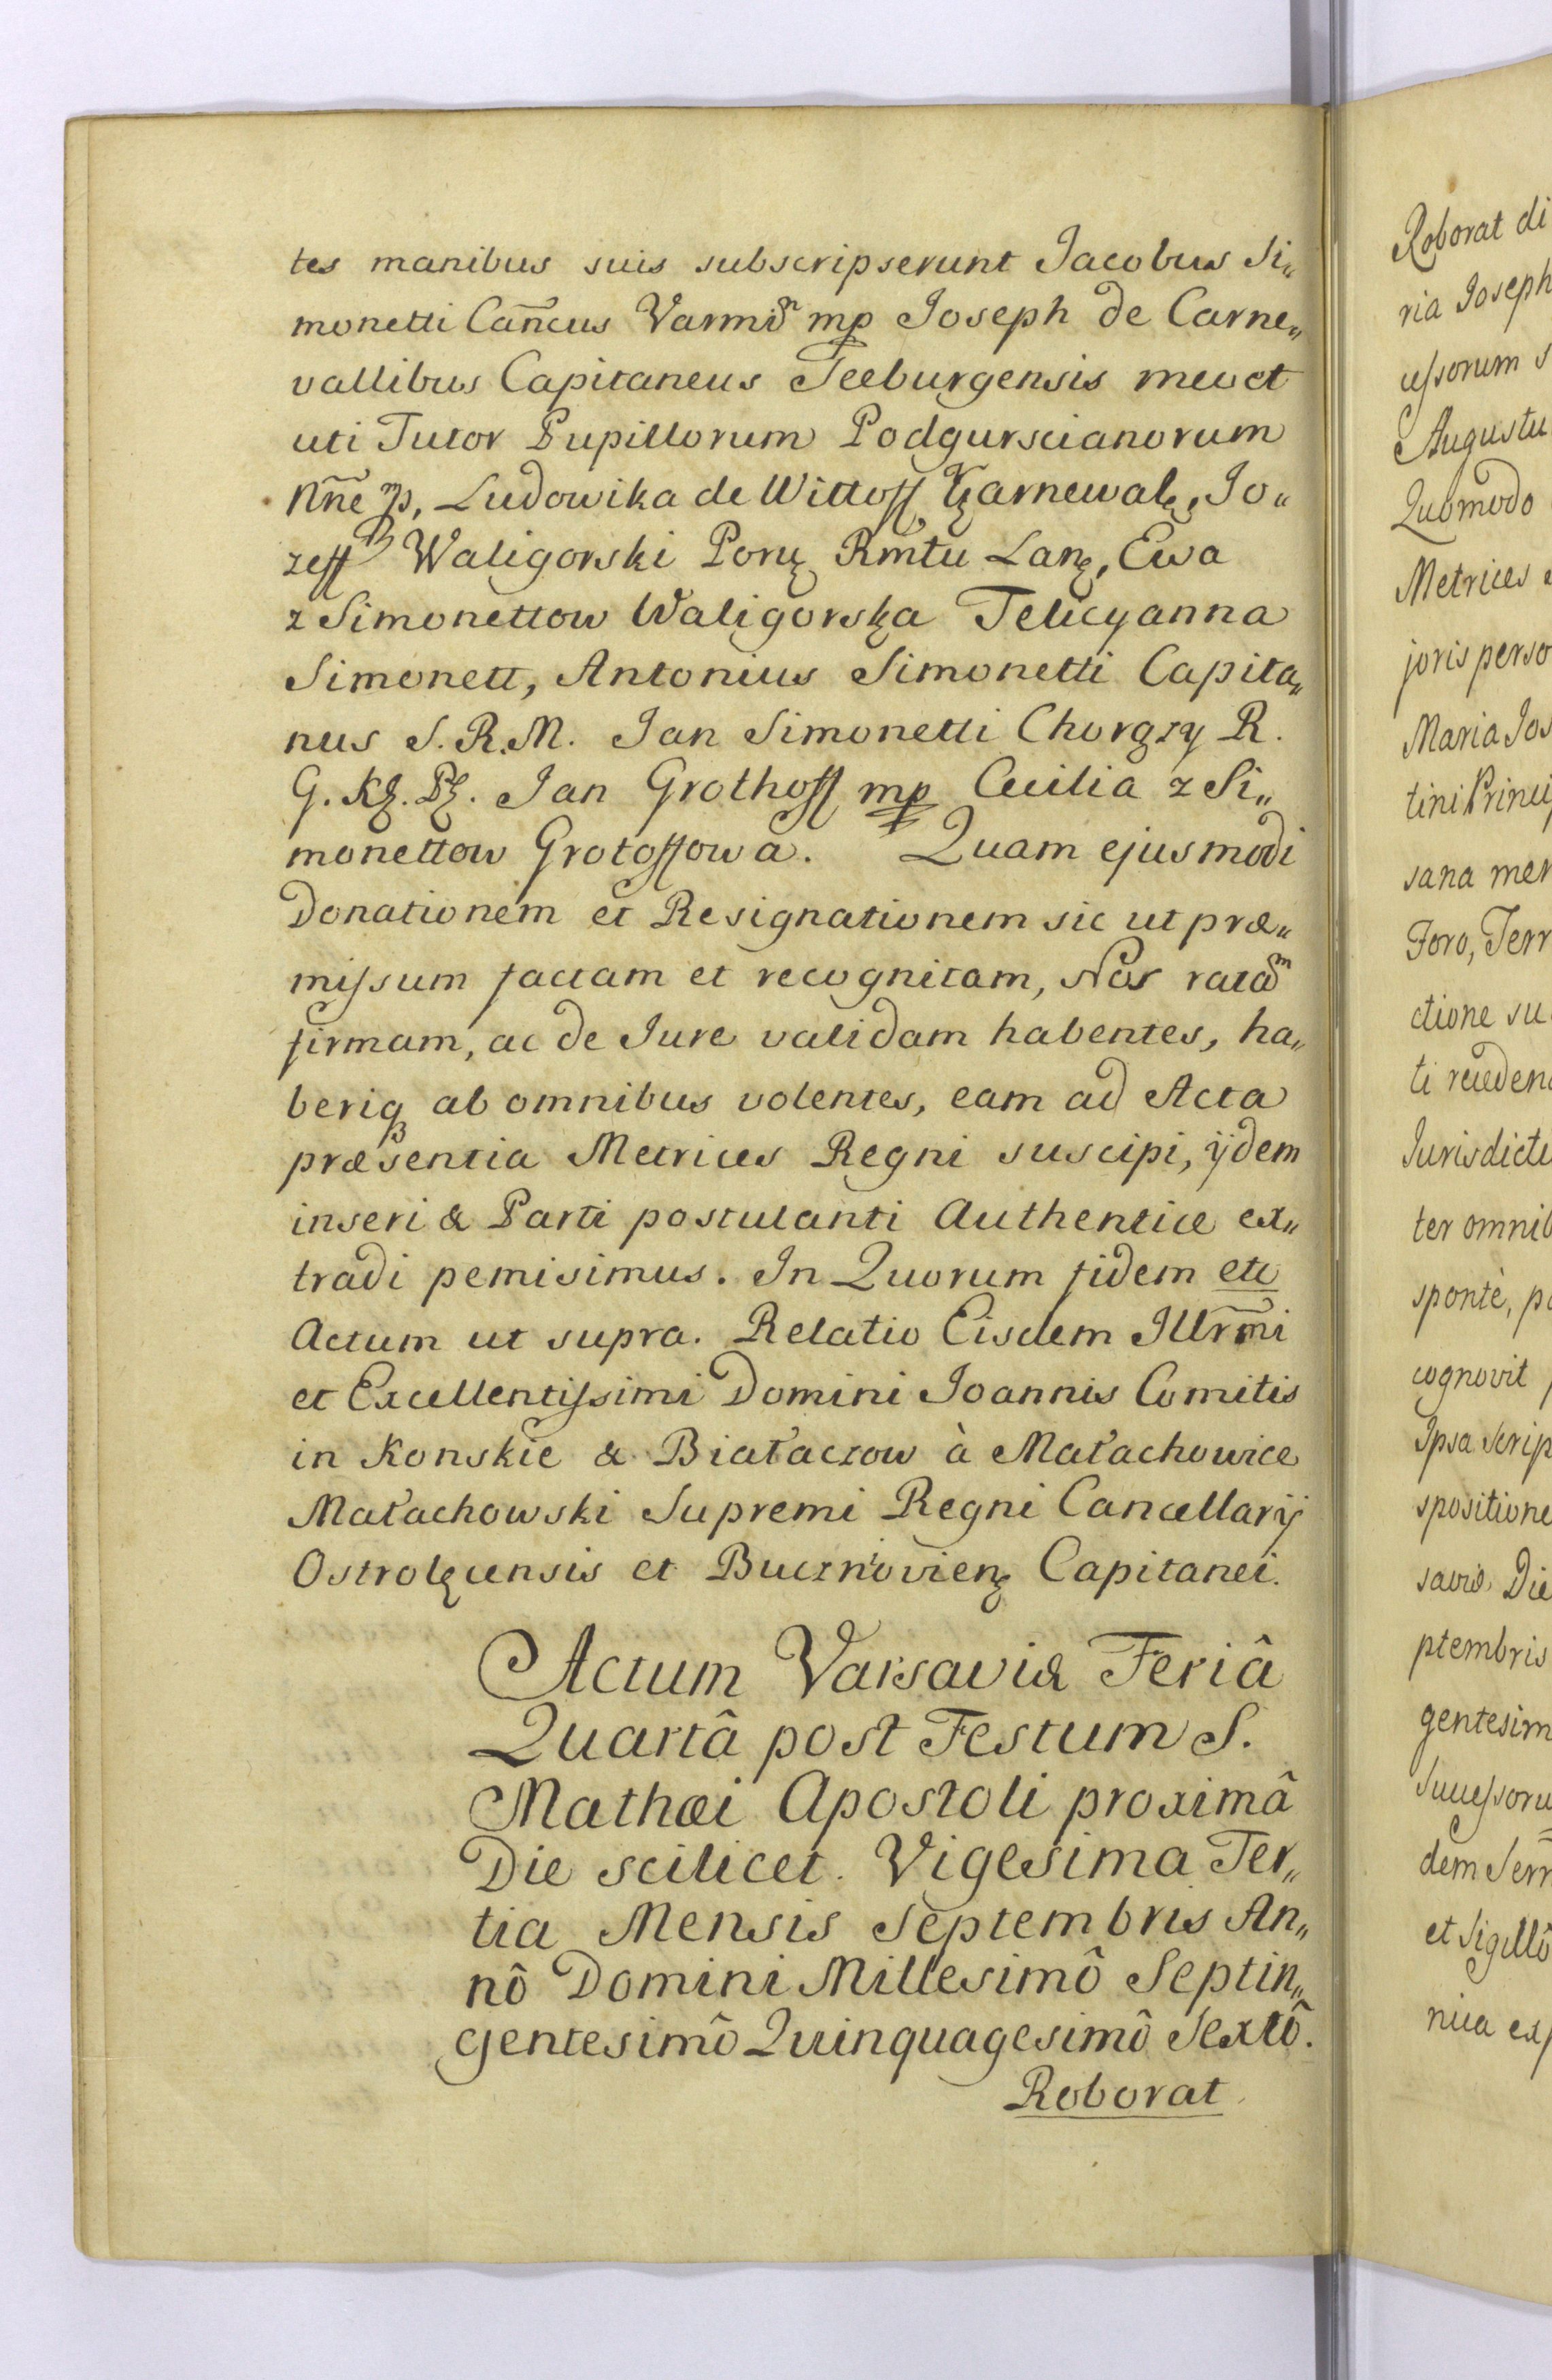 tes manibus suis subscripserunt Jacobus Si„
monetti Cañcus Varmiẽn mp Joseph de Carne„
vallibus Capitaneus Seeburgensis meo et
uti Tutor Pupillorum Podgurscianorum
Nñe mp, Ludowika de Wittoff Karnewalę, Jo„
zeff Waligorski Porų Rmtu Lanę, Ewa
z Simonettow Waligorska Felicyanna
Simonett, Antonius Simonetti Capita„
nus S. R. M. Jan Simonetti Chorąży R.
G. Kę. Pę. Jan Grothoff mp Cecilia z Si„
monettow Grotoffowa. Quam ejusmodi
Donationem et Resignationem sic ut præ„
missum factam et recognitam, Nos ratam
firmam, ac de Jure validam habentes, ha„
beriq ab omnibus volentes, eam ad Acta
præsentia Metrices Regni suscipi, ijdem
inseri & Parti postulanti Authentice ex„
tradi pemisimus. In Quorum fidem etc
Actum ut supra. Relatio Eisdem Illrm̃i
et Excellentissimi Domini Joannis Comitis
in Konskie & Białaczow à Małachowice
Małachowski Supremi Regni Cancellarij
Ostrolęcensis et Bucznovienę Capitanei.
Actum Varsaviæ Feriâ
Quartâ post Festum S.
Mathæi Apostoli proximâ
Die scilicet. Vigesima Ter„
tia Mensis Septembris An„
nô Domini Millesimô Septin„
gentesimô Quinquagesimô Sextô.
Roborat
Roborat di
ria Joseph
cessorum s
Augustu
Quomodo
Metrices
joris perso
Maria Jos
tini Princip
sana men
Foro, Terr
ctione su
ti recedend
Jurisdicti
ter omnib
spontè, p
cognovit
Ipsa Scrip
spositione
saviæ Die
ptembris
gentesim
Successoru
dem Serr
et Sigillô
nica exp